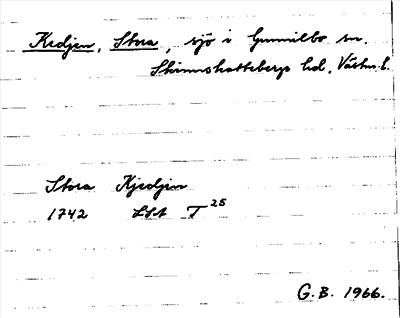 Kedjen, Stora, sjö i Gunnilbo sn.
Skinnskattebergs hd, Västm.l.
Stora Kjedjen
1742 LSA T 25
G.B. 1966.